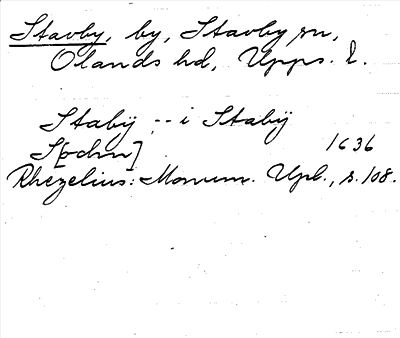 Stavby, by, Stavby sn,
Olands hd, Upps. l.
Stabÿ -- i Stabÿ
S[ochn] 1636
Rhezelius: Monum. Upl., s. 108.